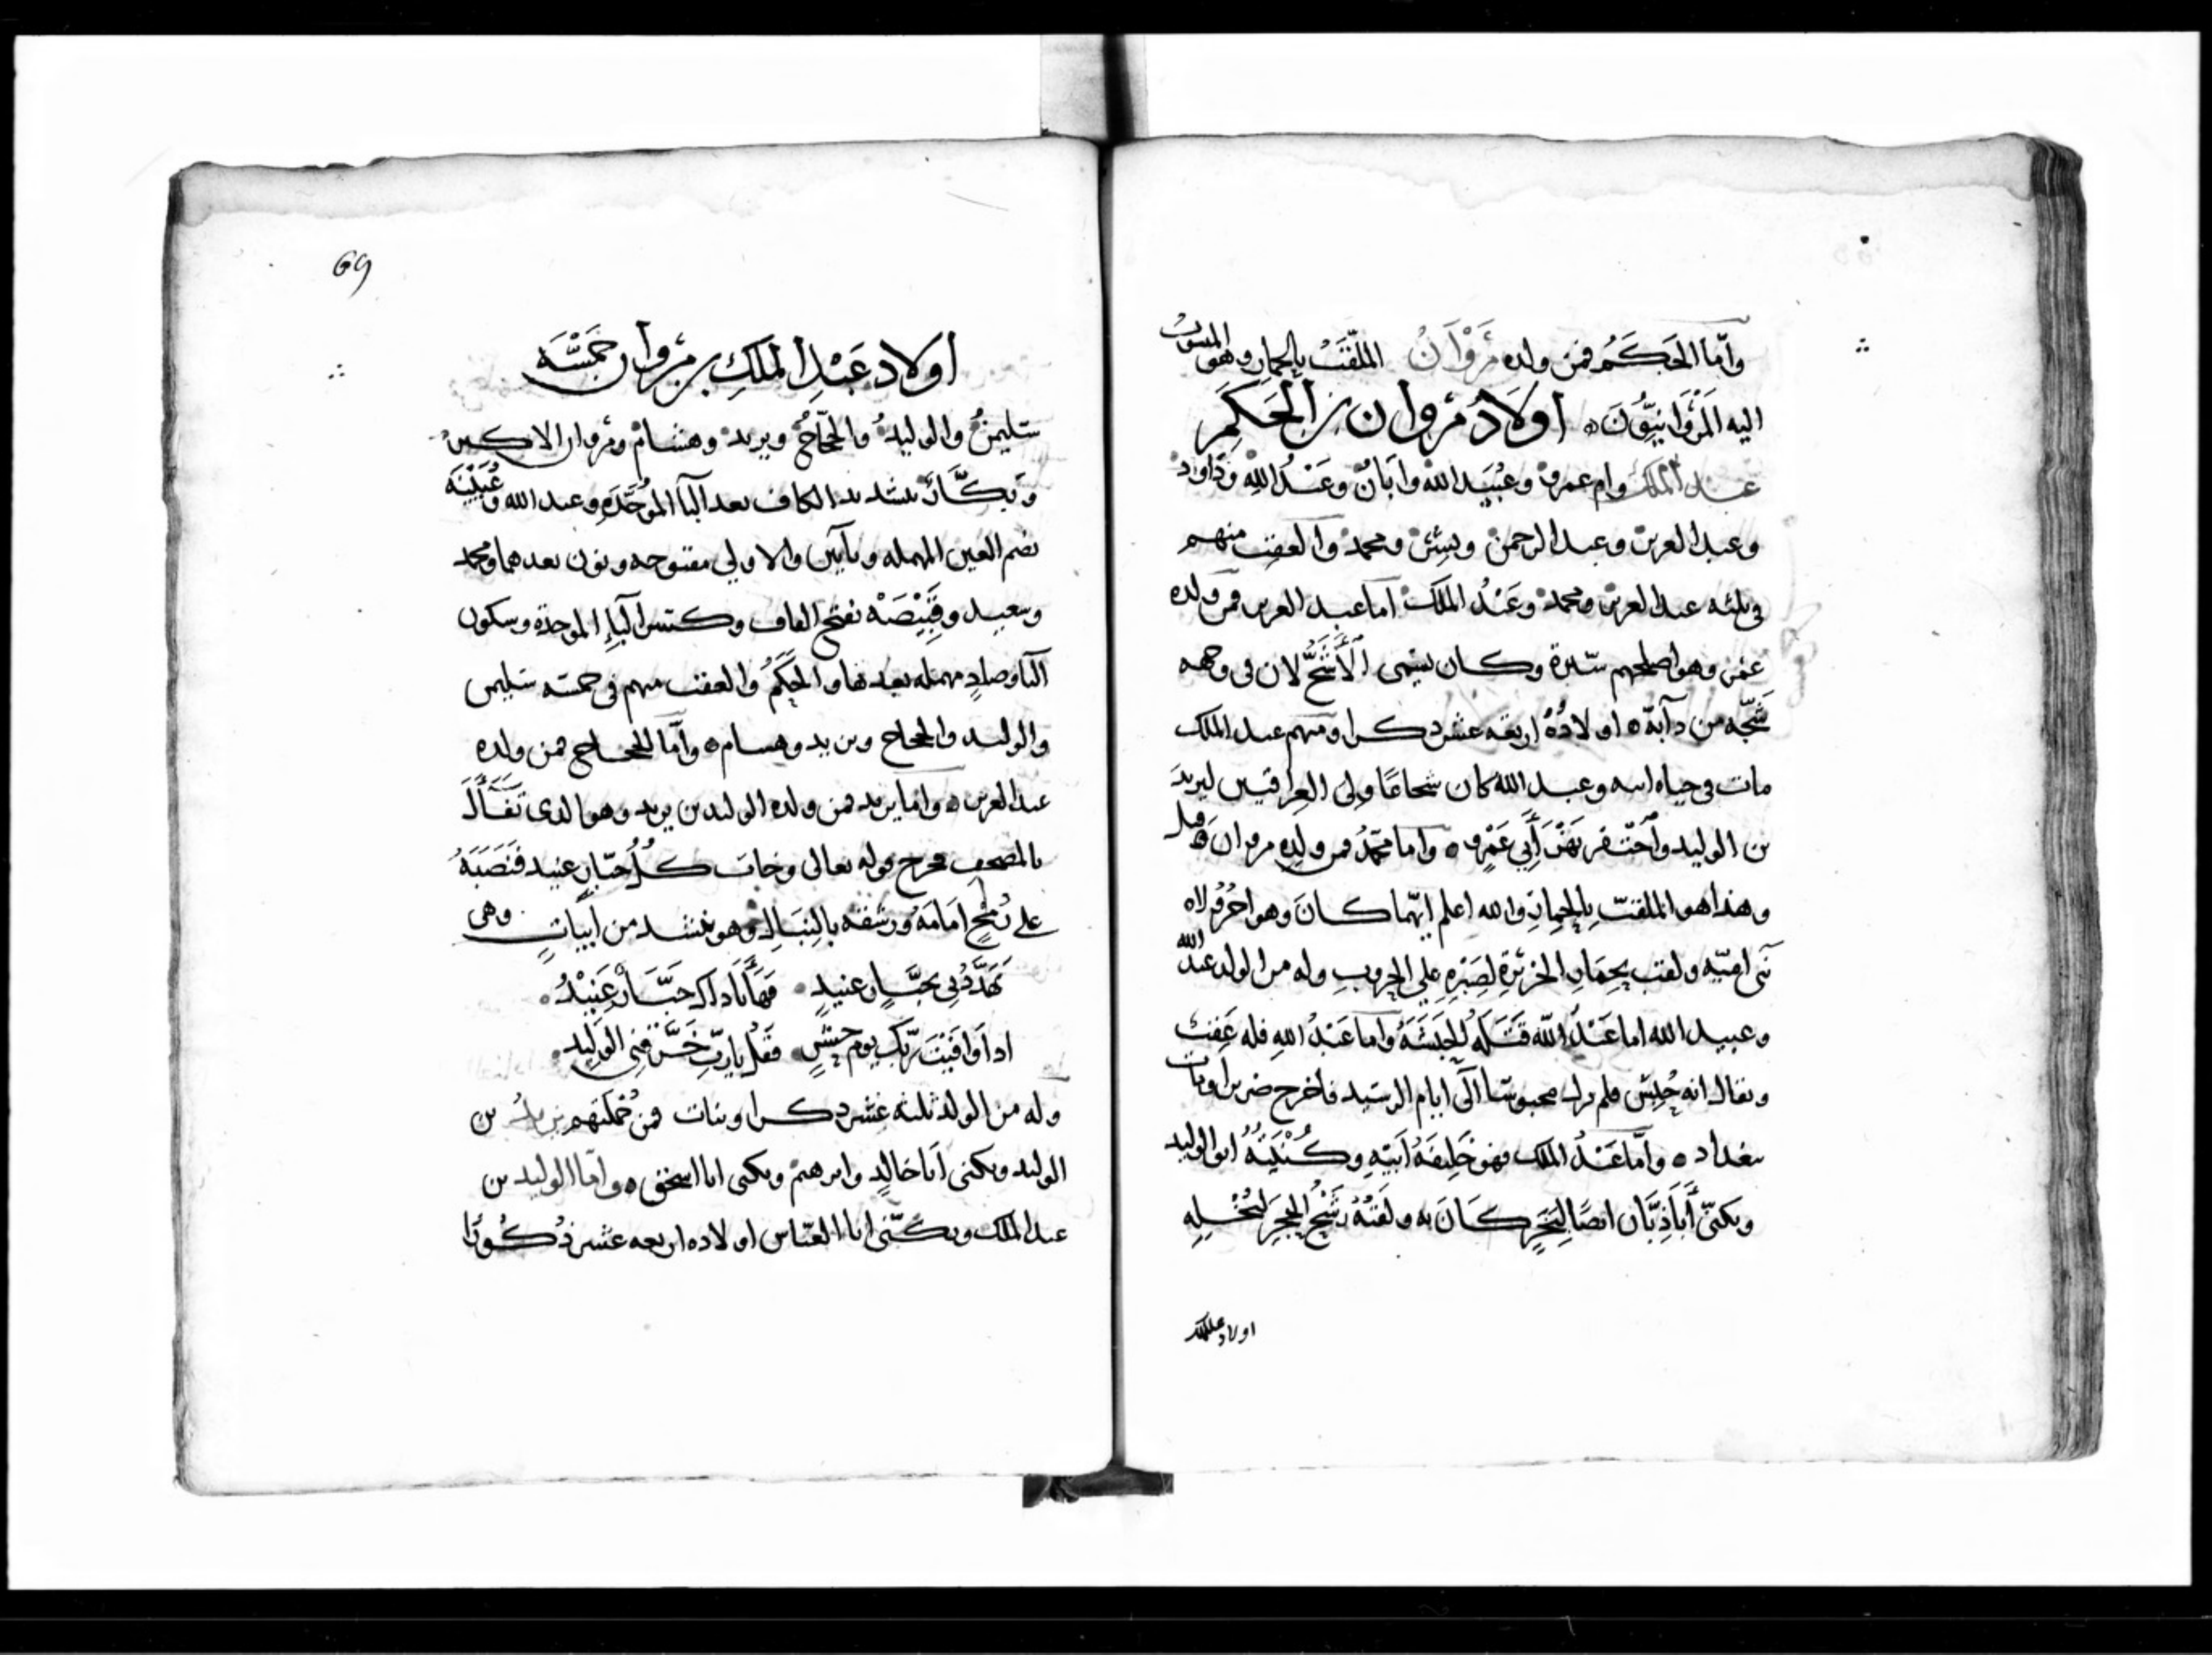 وأما الحكم فمن ولده مروان الملقب بالحمار وهو المنسوب
اليه المروانيون ه اولاد مروان بن الحكم
عبد الملك وام عمرو وعبيد الله وابان وعبد الله وداود
وعبد العزيز وعبد الرحمن وبشر ومحمد والعقب منهم
في ثلثه عبد العزيز ومحمد وعبد الملك اما عبد العزيز فمن ولده
عمر وهو اصلحهم سيرة وكان يسمى الأشج لان في وجهه
شجه من دابة ه اولاده اربعه عشر ذكرا ومنهم عبد الملك
مات في حياه ابيه وعبد الله كان شجاعا ولى العراقين ليزيد
بن الوليد واحتفر نهر أبي عمرو ه واما محمد فمن ولده مروان ه وقيل
وهذا هو الملقب بالحمار والله اعلم ايهما كان وهو اخر ولاه
بنى اميه ولقب بحمار الجزيرة لصبره على الحروب وله من الولد عبد الله
وعبيد الله اما عبيد الله قتله الحبشه واما عبد الله فله عقب
ويقال انه حبس فلم يزل محبوسا الى ايام الرشيد فاخرج ضريرا ومات
ببغداد ه وأما عبد الملك فهو خليفة ابيه وكنيته ابو الوليد
ويكنى أبا ذبان ايضا لبخر كان به ولقبه رشح الحجر لبخله
اولاد عبد الملك
69
اولاد عبد الملك بن مروان خمسة
سليمن والوليد والحجاج ويزيد وهشام ومروان الاكبر
وبكار بتشديد الكاف بعد البآ الموحده وعبد الله وعيينه
بضم العين المهمله وبآيين والاولى مفتوحه ونون بعدهما ومحمد
وسعيد وقبيصه بفتح القاف وكسر البآء الموحدة وسكون
اليا وصاد مهمله بعدها والحكم والعقب منهم في خمسه سليمن
والوليد والحجاج ويزيد وهشام ه وأما الحجاج فمن ولده
عبد العزيز ه واما يزيد فمن ولده الوليد بن يزيد وهو الذى تفأل
بالمصحف فخرج قوله تعالى وخاب كل جبار عنيد فنصبه
على رمح امامه ورشقه بالنبال وهو ينشد من ابيات وهى
تهددني بجبار عنيد فهأنا ذاك جبار عنيد
اذا وافيت ربك يوم حشر فقل يا رب خرقنى الوليد
وله من الولد ثلثه عشر ذكرا وبنات فمن جملتهم يزيد بن
الوليد ويكنى ابا خالد وابرهيم ويكنى ابا اسحق ه واما الوليد بن
عبد الملك ويكنى ابا العباس اولاده اربعه عشر ذكورا